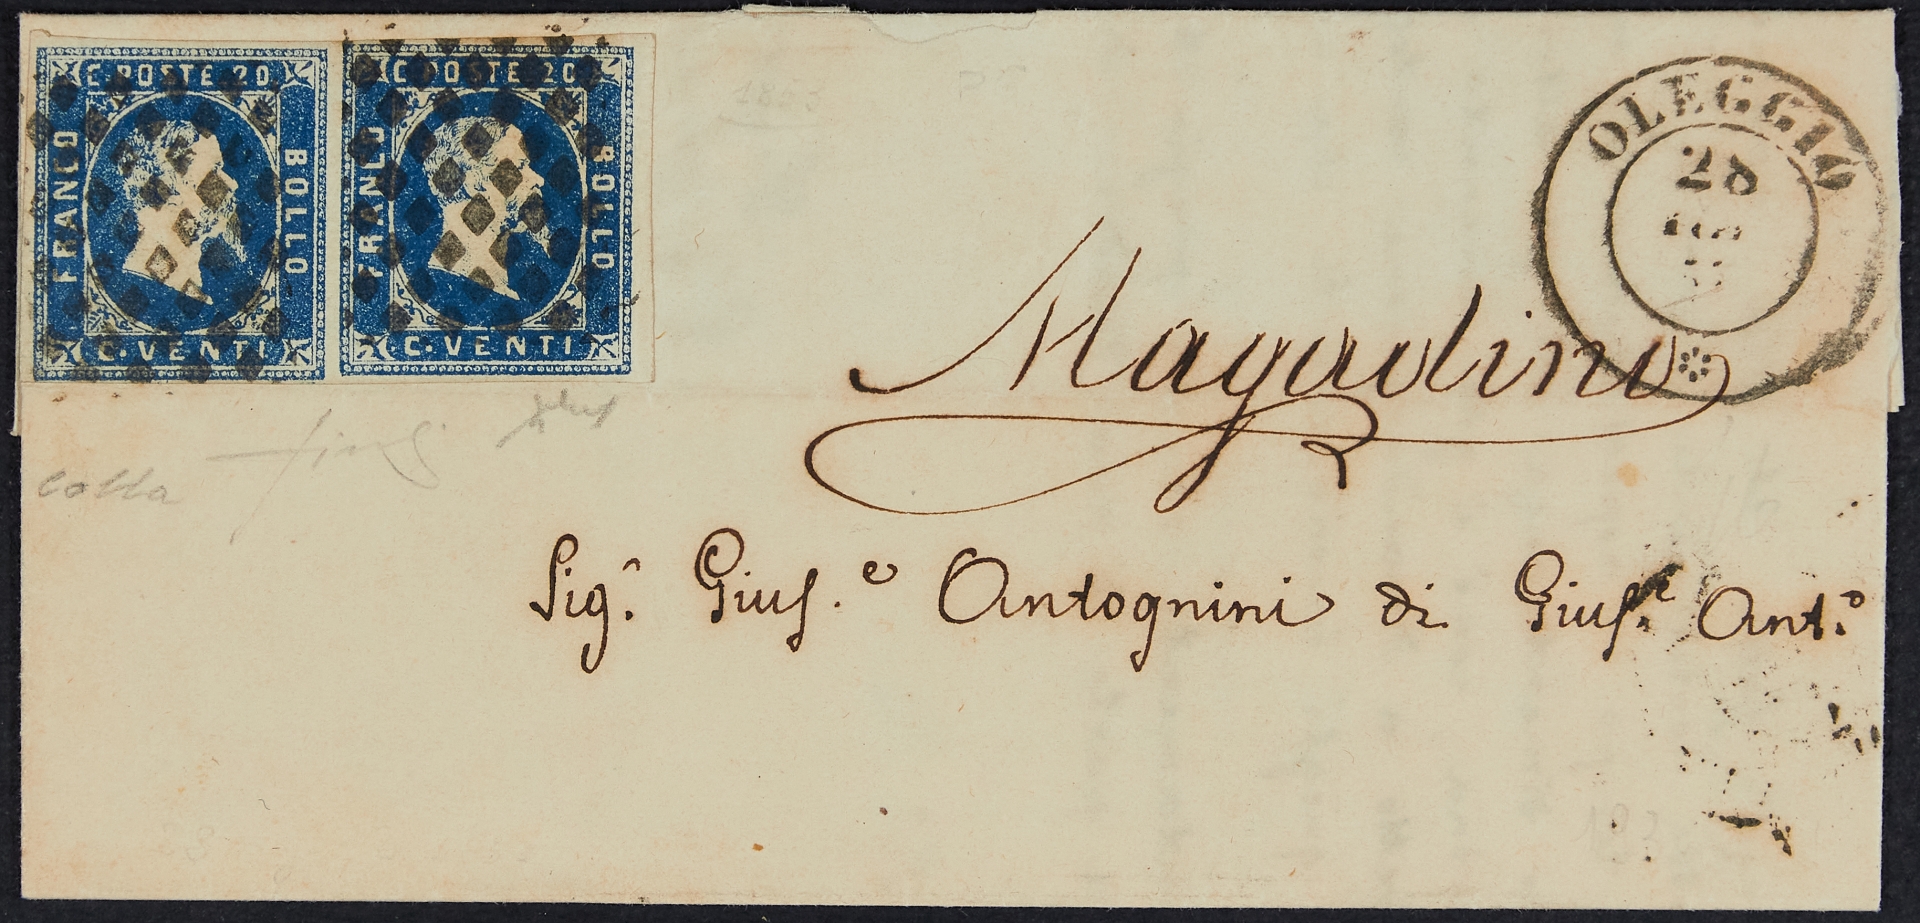 C. POSTE 20
FRANCO
BOLLO
C. VENTI
C POSTE 20
FRANCO
BOLLO
C. VENTI
OLEGGIO
28
Magadino
Sig.r Gius.e Antognini di Gius.e Ant.o
colla